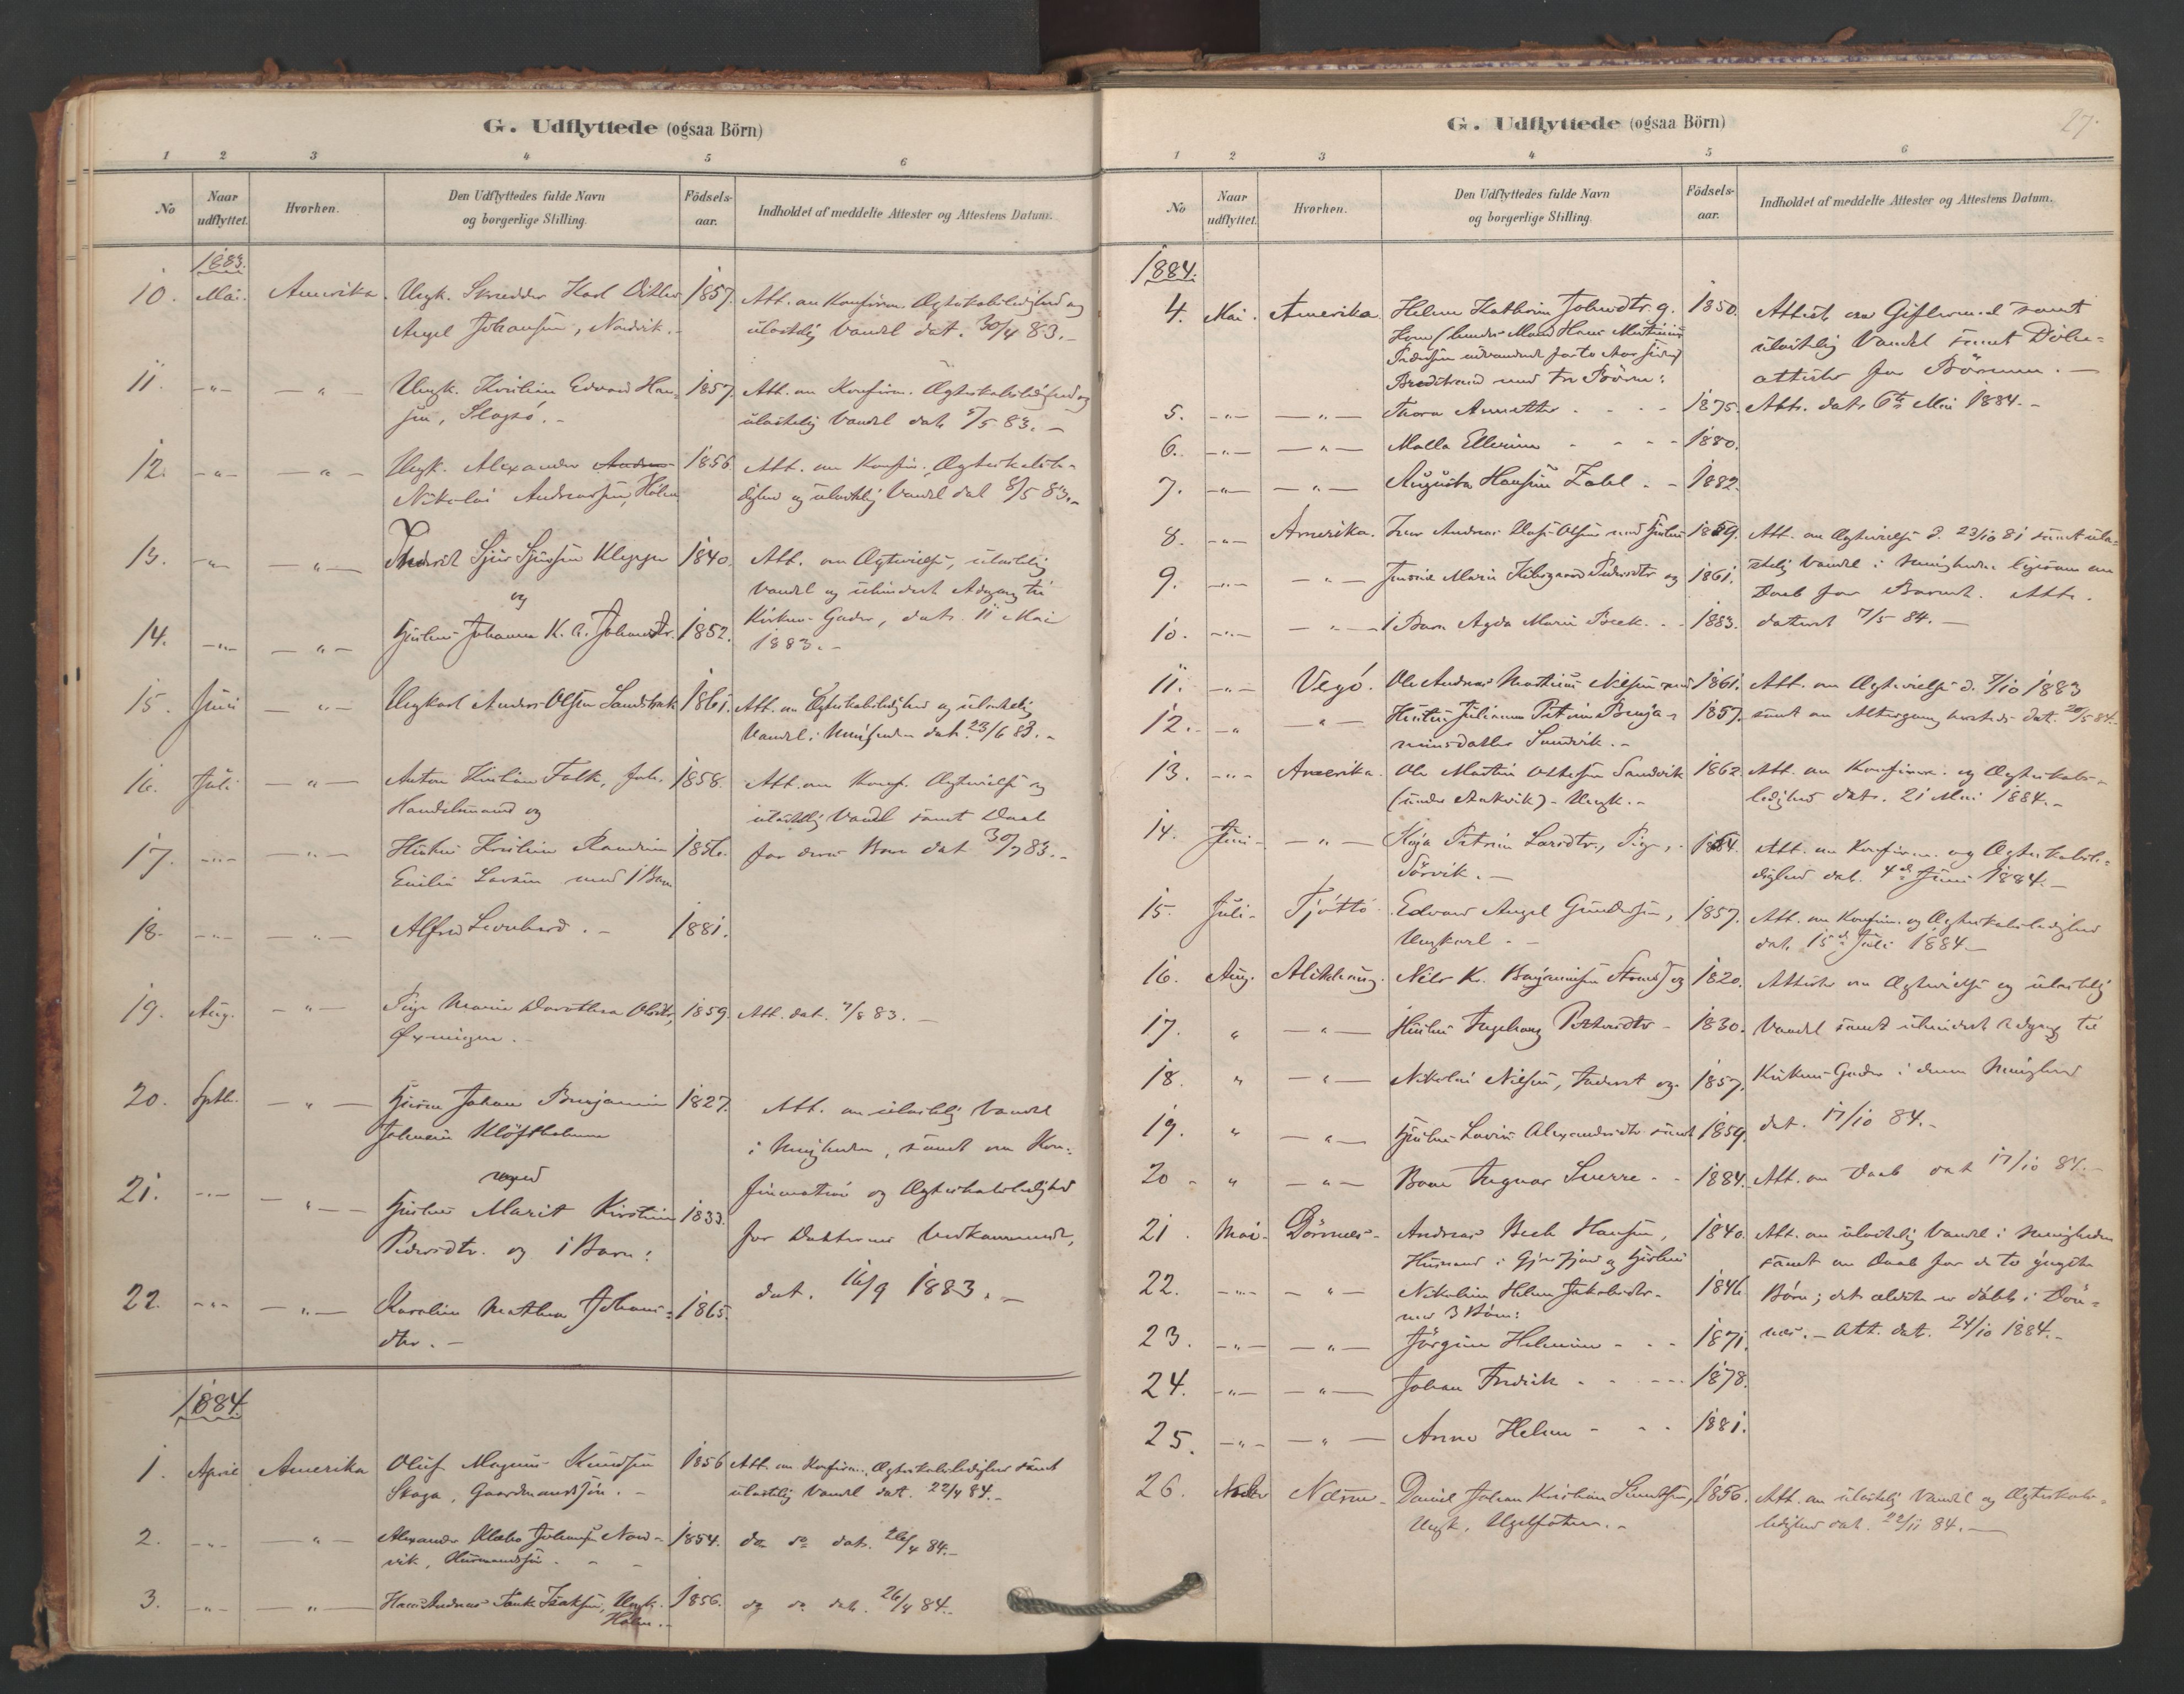 G. Udflyttede (ogsaa Börn)
1 2 3 4 5 6
No Naar udflyttet. Hvorhen. Den Udflyttedes fulde Navn og borgerlige Stilling. Födsels-aar. Indholdet af meddelte Attester og Attestens Datum.
1883.
10. Mai. Amerika. Ungk. Skrædder Karl Ditlev 1857. Att. om Konfirm. Ægteskabsledighed og
Angel Johansen, Nordvik. ulastelig Vandel dat. 30/4 83.
11. -"- -"- Ungk. Kristian Edvard Han- 1857. Att. om Konfirm. Ægteskabsledighed og
sen, ulastelig Vandel dat. 5/5 83.
12. -"- -"- Ungk. Alexander 1856. Att. om Konfir. Ægteskabsle-
Nikolai Andreassen, Holm dighed og ulastelig Vandel dat 8/5 83.
13. -"- -"- Inderst Sjur Sjursen Kleppen 1840. Att. om Ægtevielse, ulastelig
og Vandel og uhindret Adgang til
14. -"- -"- Hustru Johanna K. A. Johansdtr. 1852. Kirkens Goder, dat. 11 Mai
1883.
15. Juni -"- Ungkarl Anders Olsen 1861. Att. om Ægteskabsledighed og ulastelig
Vandel i Menigheden dat. 23/6 83.
16. Juli -"- Anton Kristian Falk, 1858. Att. om Konf. Ægtevielse og
Handelsmand og ulastelig Vandel samt Daab
17. -"- -"- Hustru Kristine 1856. for deres Barn dat 30/7 83.
Emilie Larsen med 1 Barn
18. -"- -"- Alfred Leonhard. 1881.
19. Aug. -"- Pige Marie Dorothea Olsdtr, 1859. Att. dat. 7/8 83.
Øxningen.
20. Septb. -"- Johan Benjamin 1827. Att. om ulastelig Vandel
Johnsen Klöftholmen i Menigheden, samt om Kon-
med
21. -"- -"- Hustru Marit Kirstine 1833. firmation og Ægteskabsledighed
Pedersdtr. og 1 Barn: for Datteren Vedkommende,
22. -"- -"- Karoline Mathea Johans- 1865. dat. 16/9 1883.
dtr.
1884
1. April Amerika Oluf Magnus Knudsen 1856 Att. om Konfirm. Ægteskabsledighed samt
Skaga, Gaardmandssön. ulastelig Vandel dat. 22/4 84.
2. -"- -"- Alexander Klæbo Johansen Nord- 1854. do do dat. 26/4 84.
vik, Husmandssön.
3. -"- -"- Hans Andreas Tank Isaksen, Ungk. 1856. do do dat. 26/4 84.
Holm.
27.
G. Udflyttede (ogsaa Börn)
1 2 3 4 5 6
No Naar udflyttet. Hvorhen. Den Udflyttedes fulde Navn og borgerlige Stilling. Födsels-aar. Indholdet af meddelte Attester og Attestens Datum.
1884.
4. Mai. Amerika. Helene Kathrine Johnsdtr. g. 1850. Attest om Giftermaal samt
Kone (hendes Mand Hans Martinius ulastelig Vandel samt Döbe-
Pedersen udvandret for to Aar siden) attester for Börnene.
Bredstrand med tre Börn:
5. -"- -"- Thora Annette 1875. Atts. dat. 6te Mai 1884.
6. -"- -"- Malla Ellerine 1880.
7. -"- -"- Augusta Hansine Zahl 1882.
8. -"- Amerika. Andreas Olsen med Hustru 1859. Att. om Ægtevielse d. 23/10 81 samt ula-
9. -"- -"- Marie Pedersdtr og 1861. stelig Vandel i Menigheden ligesom om
Daab for Barnet. Atts.
10. -"- -"- 1 Barn Agda Marie 1883. dateret 7/5 84.
11. -"- Vegö. Ole Andreas Martinus Nilsen med 1861. Att. om Ægtevielse d. 7/10 1883
12. -"- " Hustru Julianna Petrine Benja- 1857. samt om Altergang dat. 20/5 84.
minsdatter Sandvik.
13. -"- Amerika. Ole Martin Sandvik 1862. Att. om Konfirm. og Ægteskabs-
Ungk. ledighed dat. 21 Mai 1884.
14. Juni -"- Kaja Petrine Larsdtr., Pige, 1864. Att. om Konfirm. og Ægteskabsle-
Sörvik. dighed dat. 4de Juni 1884.
15. Juli Tjöttö Edvard Angel Gundersen, 1857. Att. om Konfirm. og Ægteskabsledighed
Ungkarl dat. 15de Juli 1884
16. Aug. Alstahaug. Nils K. Benjaminsen Strand og 1820. Attester om Ægtevielse og ulastelig
17. " -"- Hustru Ingeborg 1830. Vandel samt uhindret Adgang til
18. " -"- Nikolai Nilsen, Inderst og 1857. Kirkens Goder i denne Menighed
19. " -"- Hustru Lavine Alexandersdtr samt 1859. dat. 17/10 84.
20 " -"- Barn Ingvar Sverre 1884. Att. om Daab dat 17/10 84.
21. Mai Dönnes Andreas Hansen, 1840. Att. om ulastelig Vandel i Menigheden
Husmand i og Hustru samt om Daab for de to yngste
22. -"- -"- Nikoline Helene Jakobsdtr. 1846. Börn; det ældste er döbt i Dön-
med 3 Börn:
23. -"- -"- Jörgine Helmine 1871. nes. Att. dat. 24/10 1884.
24. -"- -"- Johan Fredrik 1878.
25. -"- -"- Anna Helene 1881.
26. Daniel Johan Kristian 1856. Att. om ulastelig Vandel og Ægteskabs-
Ungk. ledighed dat. 22/11 84.